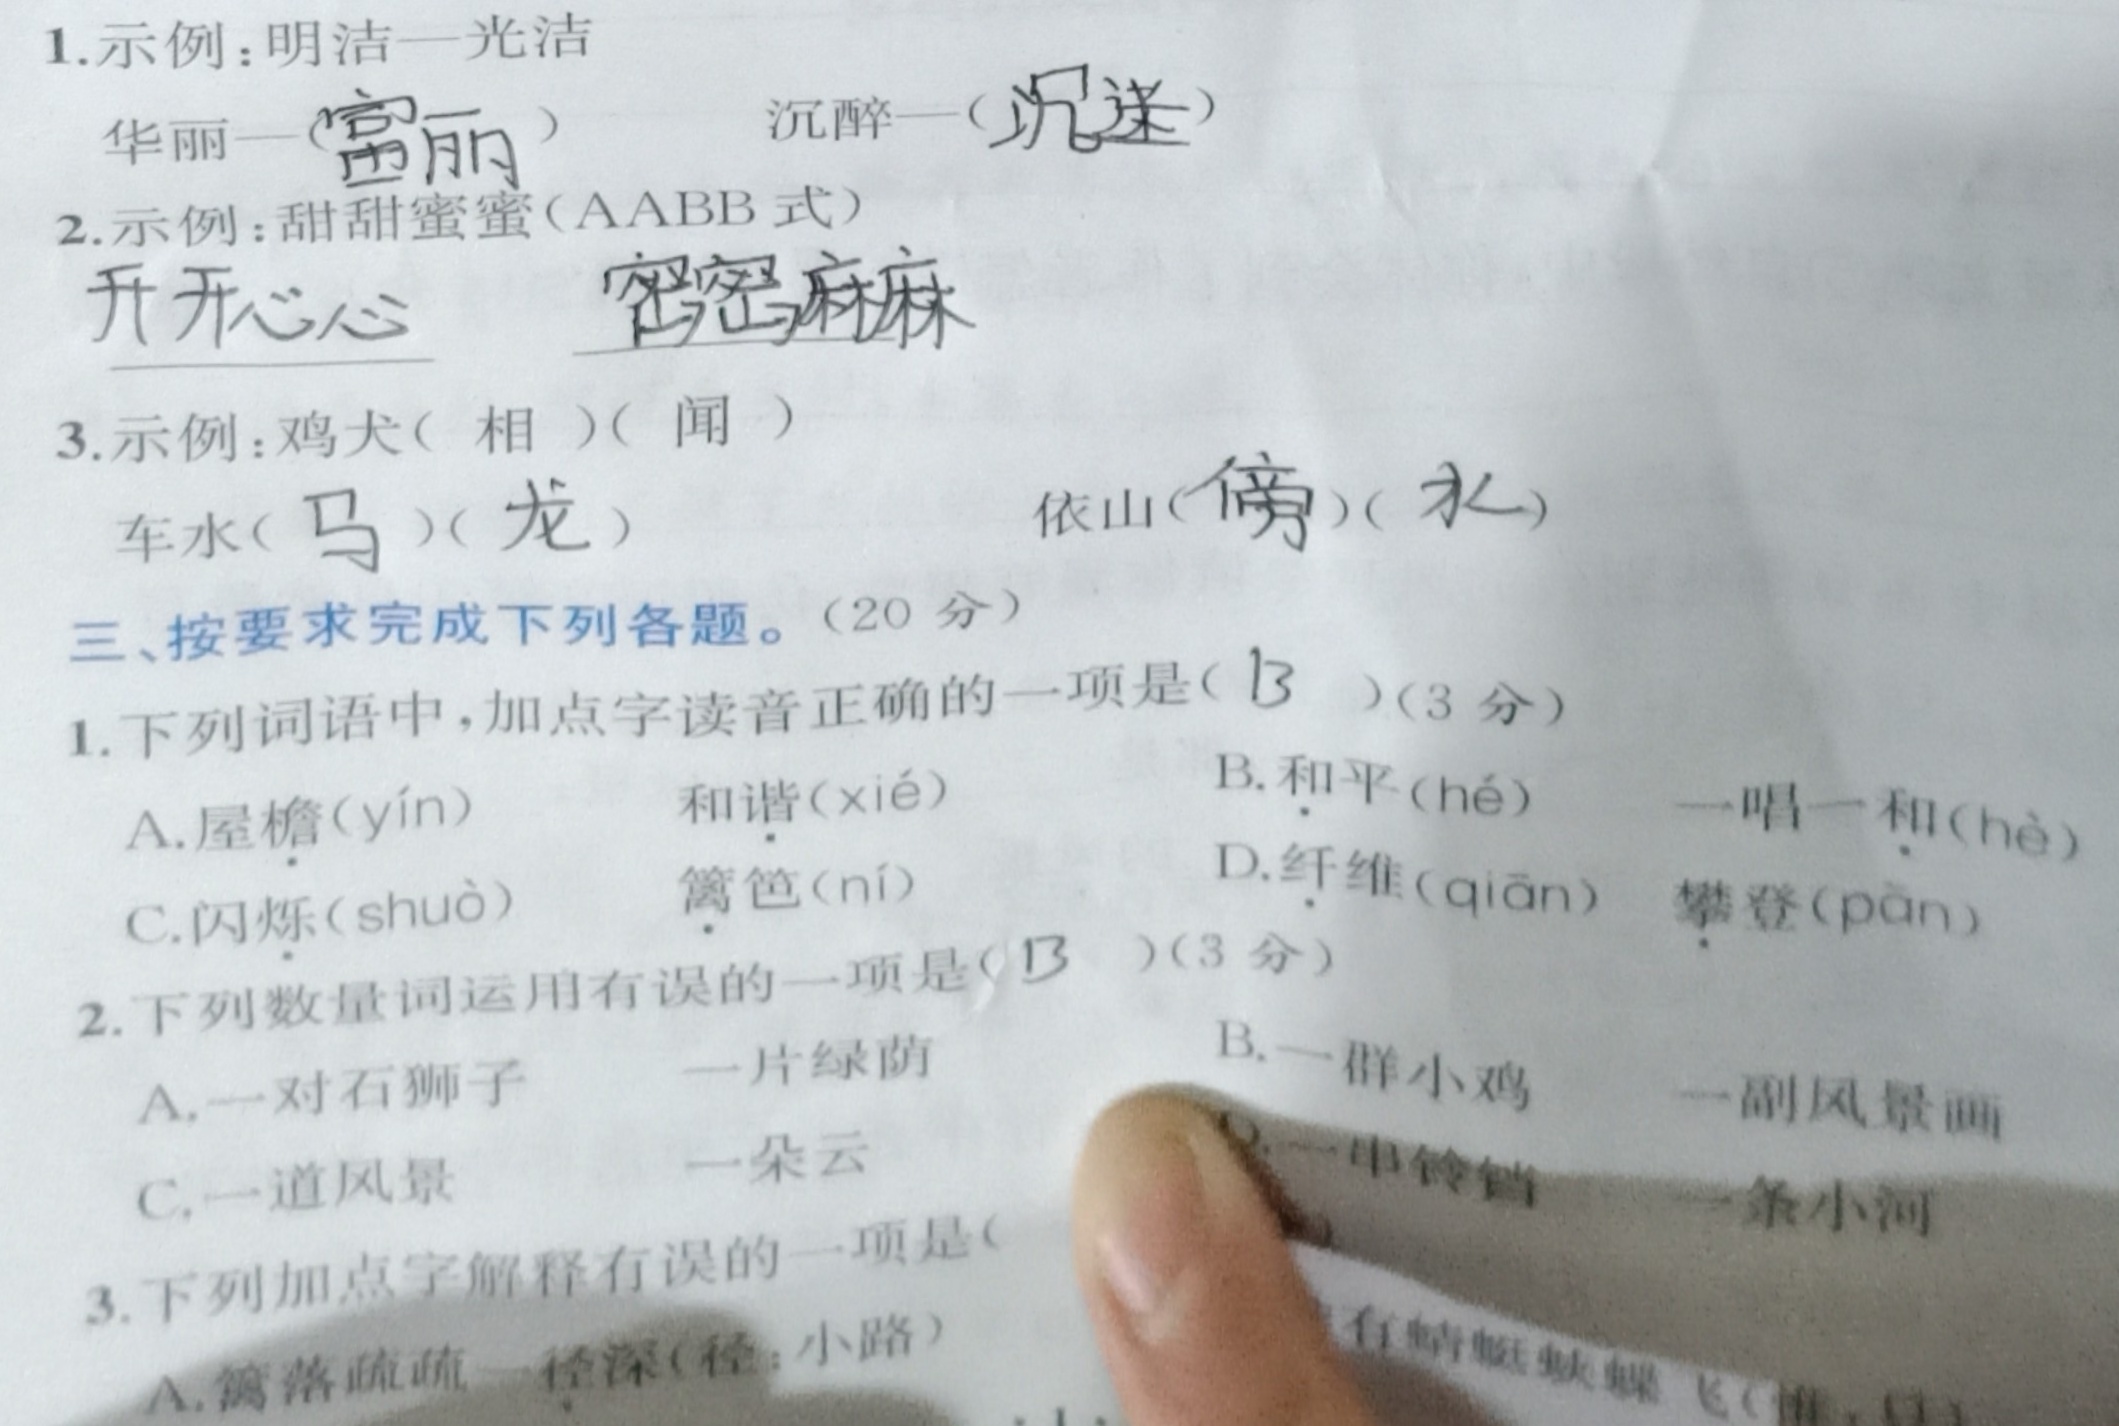 1.示例:明洁—光洁
华丽—(富丽) 沉醉—(沉迷)
2.示例:甜甜蜜蜜(AABB 式)
开开心心 密密麻麻
3.示例:鸡犬( 相 )( 闻 )
车水( 马 )( 龙 ) 依山( 傍 )( 水 )
三、按要求完成下列各题。(20 分)
1.下列词语中,加点字读音正确的一项是( B )(3 分)
A.屋檐(yín) 和谐(xié) B.和平(hé) 一唱一和(hè)
C.闪烁(shuò) 篱笆(ní) D.纤维(qiān) 攀登(pān)
2.下列数量词运用有误的一项是( B )(3 分)
A.一对石狮子 一片绿荫 B.一群小鸡 一副风景画
C.一道风景 一朵云 D.一串铃铛 一条小河
3.下列加点字解释有误的一项是(
A.篱落疏疏一径深(径:小路) 有蜻蜓蛱蝶飞(